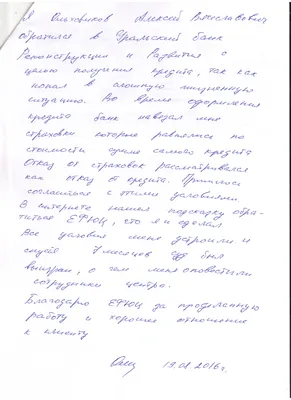 Я Ольховиков Алексей Вячеславович
обратился в Уральский Банк
Реконструкции и Развития с
целью получения кредита, так как
попал в сложную жизненную
ситуацию. Во время оформления
кредита банк навязал мне
страховки которые равнялись по
стоимости сумме самого кредита
Отказ от страховок рассматривался
как отказ от кредита. Пришлось
согласиться с этими условиями
В интернете нашел подсказку обра-
титься ЕФЮЦ, что я и сделал
Все условия меня устроили и
спустя 7 месяцев суд был
выигран, о чем меня оповестили
сотрудники центра.
Благодарю ЕФЮЦ за проделанную
работу и хорошее отношение
к клиенту
19.01.2016г.